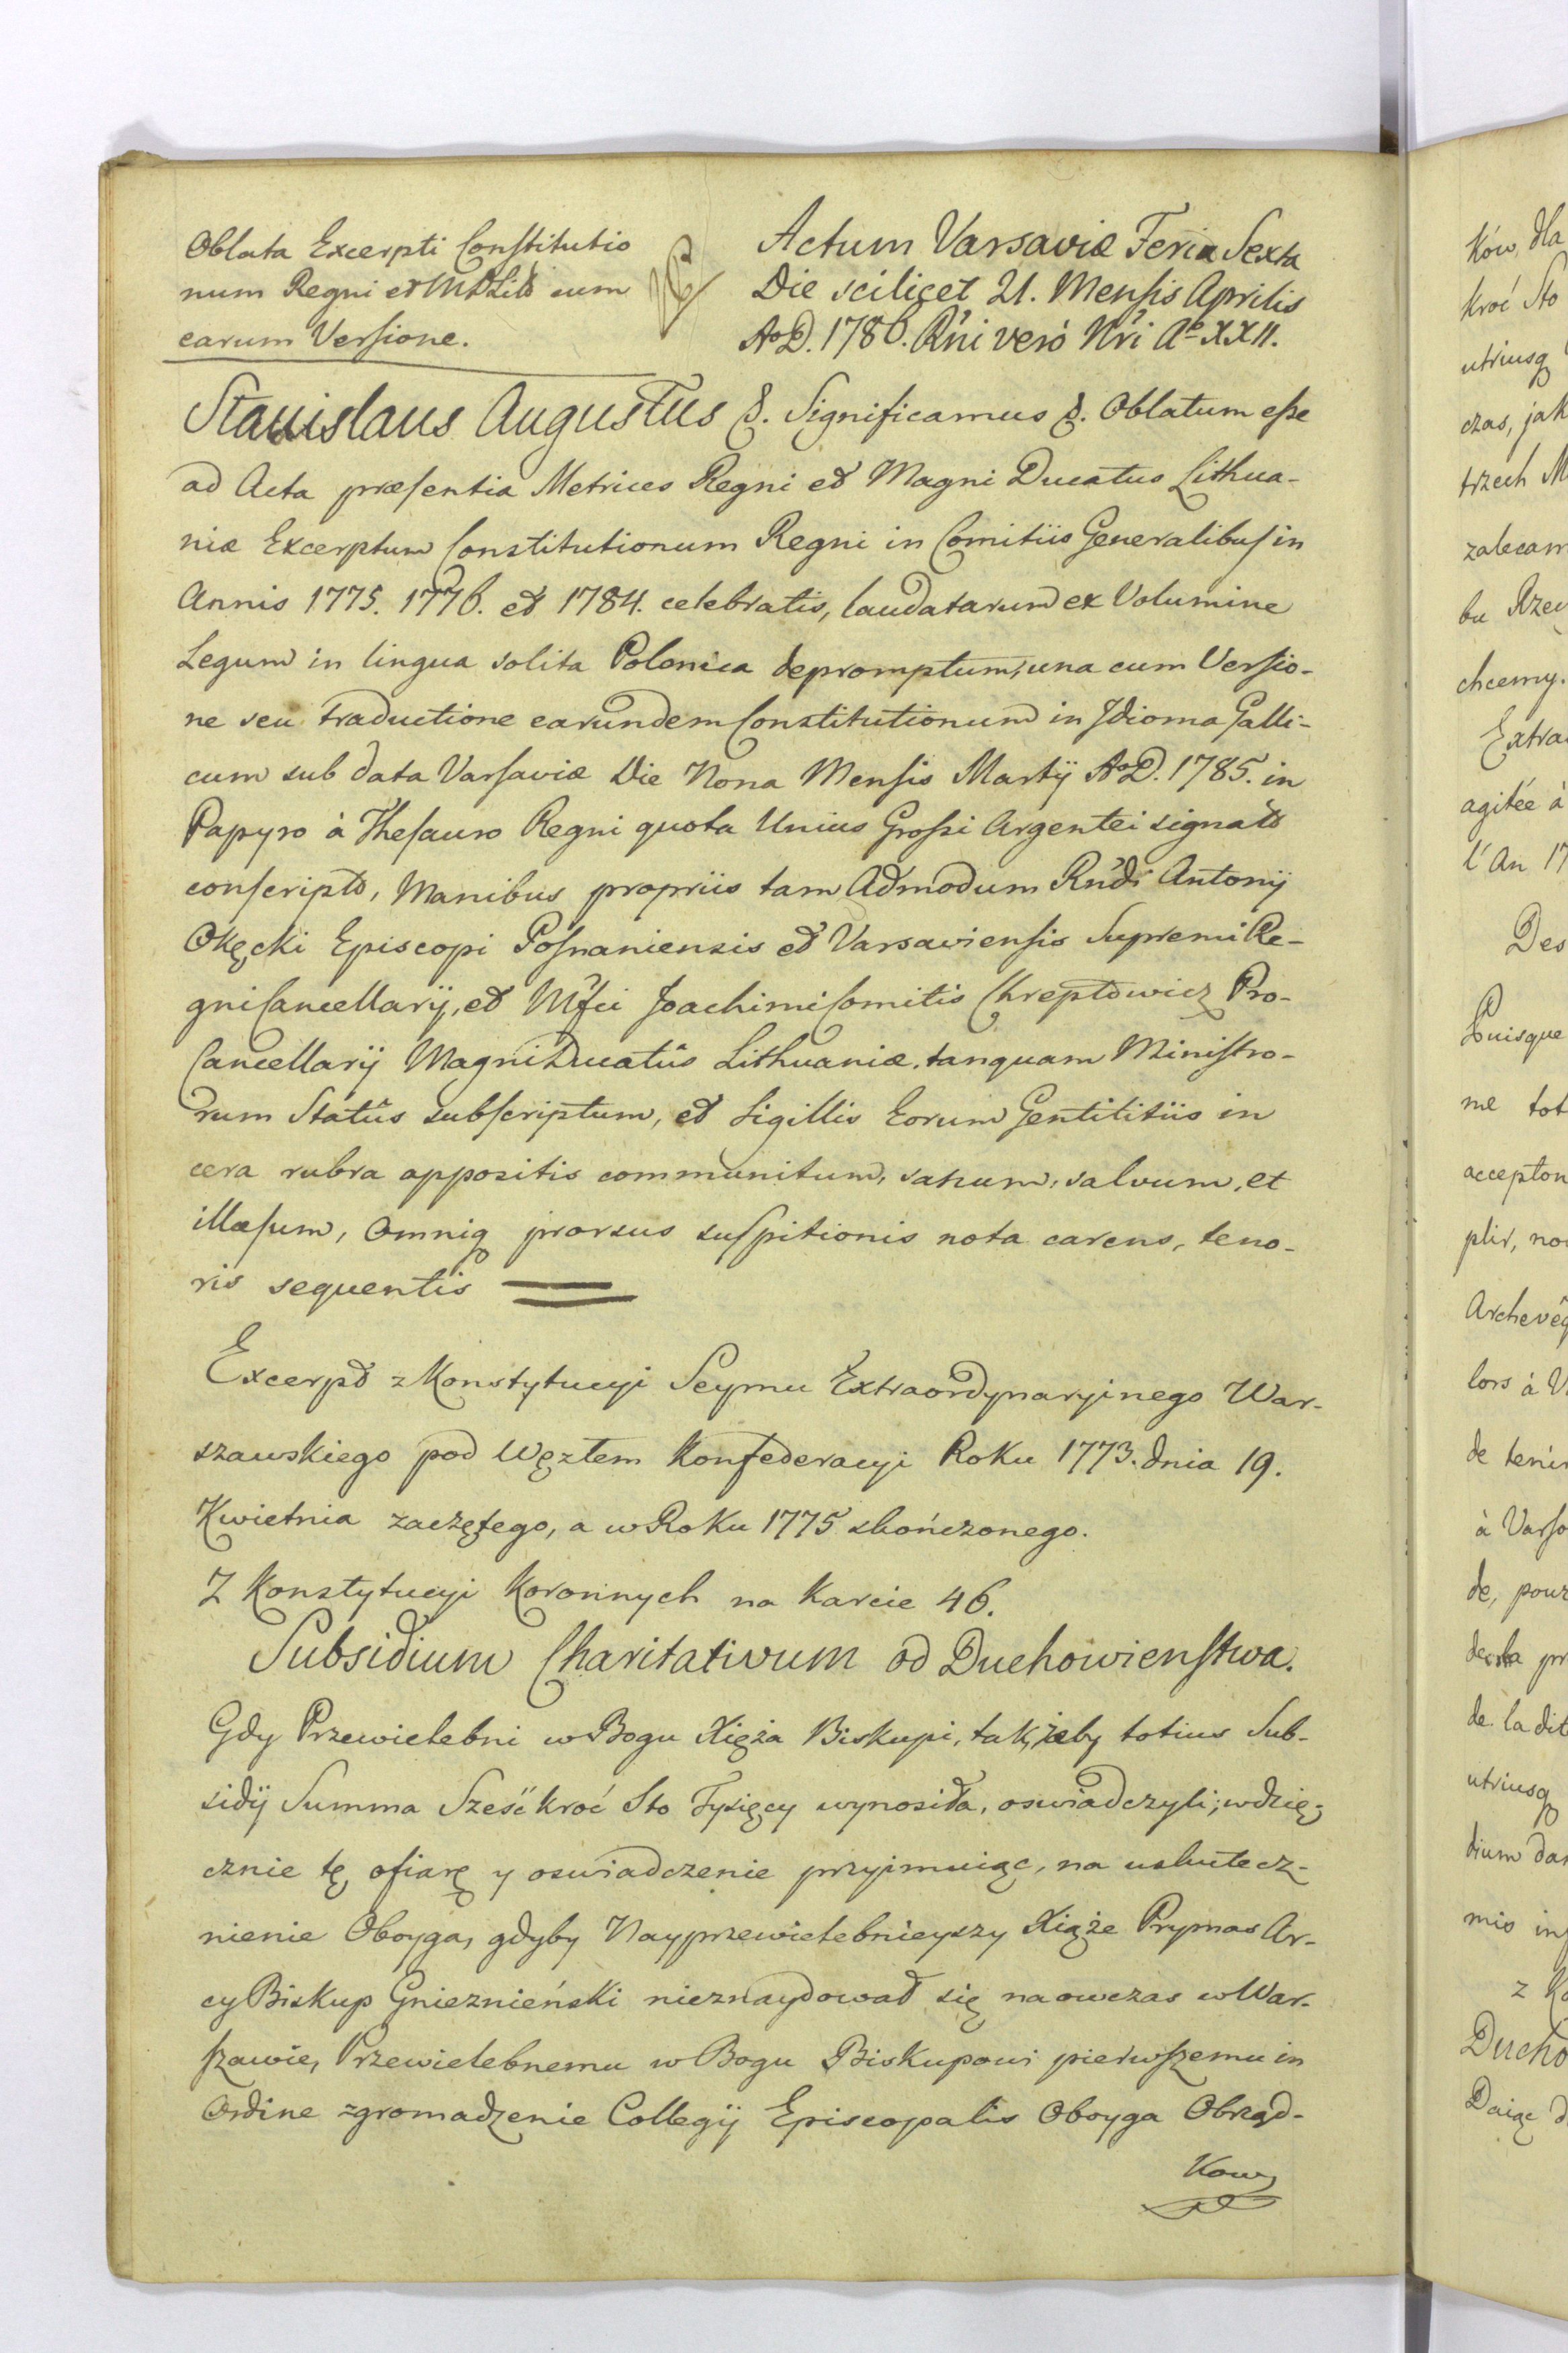 Oblata Excerpti Constitutio
num Regni et MDLitt cum
earum Versione.
Actum Varsaviæ Feria Sexta
Die scilicet 21. Mensis Aprilis
AoD. 1786. Rñi verò Nri Ao XXII.
Stanislaus Augustus &. Significamus &. Oblatum esse
ad Acta præsentia Metrices Regni et Magni Ducatus Lithua-
niæ Excerptum Constitutionum Regni in Comitiis Generalibus in
Annis 1775. 1776. et 1784. celebratis, laudatarum ex Volumine
Legum in lingua solita Polonica depromptum, una cum Versio-
ne seu traductione earundem Constitutionum in Idioma Galli-
cum sub data Varsaviæ Die Nona Mensis Martÿ AoD. 1785. in
Papyro à Thesauro Regni quota Unius Grossi Argentei signato
conscripto, Manibus propriis tam Admodum Rñdi Antonÿ
Okęcki Episcopi Posnaniensis et Varsaviensis Supremi Re-
gni Cancellarÿ, et Mfci Joachimi Comitis Chreptowicz Pro-
Cancellarÿ Magni Ducatûs Lithuaniæ, tanquam Ministro-
rum Statûs subscriptum, et Sigillis Eorum Gentilitiis in
cera rubra appositis communitum, sanum, salvum, et
illæsum, Omniq prorsus suspitionis nota carens, teno-
ris sequentis
Excerpt z Konstytucyi Seymu Extraordynaryinego War-
szawskiego pod Węzłem Konfederacyi Roku 1773. dnia 19.
Kwietnia zaczętego, a w Roku 1775 skończonego.
Z Konstytucyi Koronnych na Karcie 46.
Subsidium Charitativum od Duchowienstwa.
Gdy Przewielebni w Bogu Xięża Biskupi, tak, żeby totius Sub-
sidÿ Summa Sześć kroć Sto Tysięcy wynosiła, oswiadczyli; wdzię-
cznie tę ofiarę y oswiadczenie przyimuiąc, na uskutecz-
nienie Oboyga, gdyby Nayprzewielebnieyszy Xiąże Prymas Ar-
cy Biskup Gnieznieński nieznaydował się naowczas w War-
szawie, Przewielebnemu w Bogu Biskupowi pierwszemu in
Ordine zgromadzenie Collegÿ Episcopalis Oboyga Obrząd-
Kow,
ków, dla
kroć Sto
utriusq
czas, jak
trzech M
zalecam
bu Rzec
chcemy.
Extra
agitée à
l'An 17
Des
Puisque
me tot
accepton
plir, no
Archevêq
lors à V
de tenir
à Varso
de, pour
pr
de la dit
utriusq
dium dar
mis in
z Ko
Ducho
Daiąc d